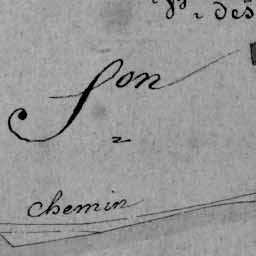 des
Son
2
chemin